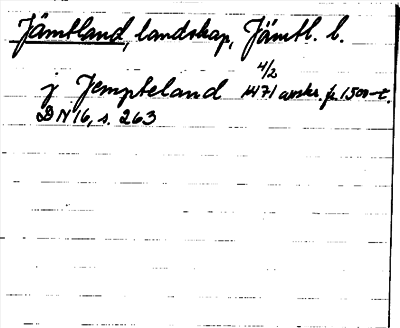 Jämtland, landskap, Jämtl. l.
j Jempteland 4/2 1471 avskr. fr. 1500-t.
DN 16, s. 263